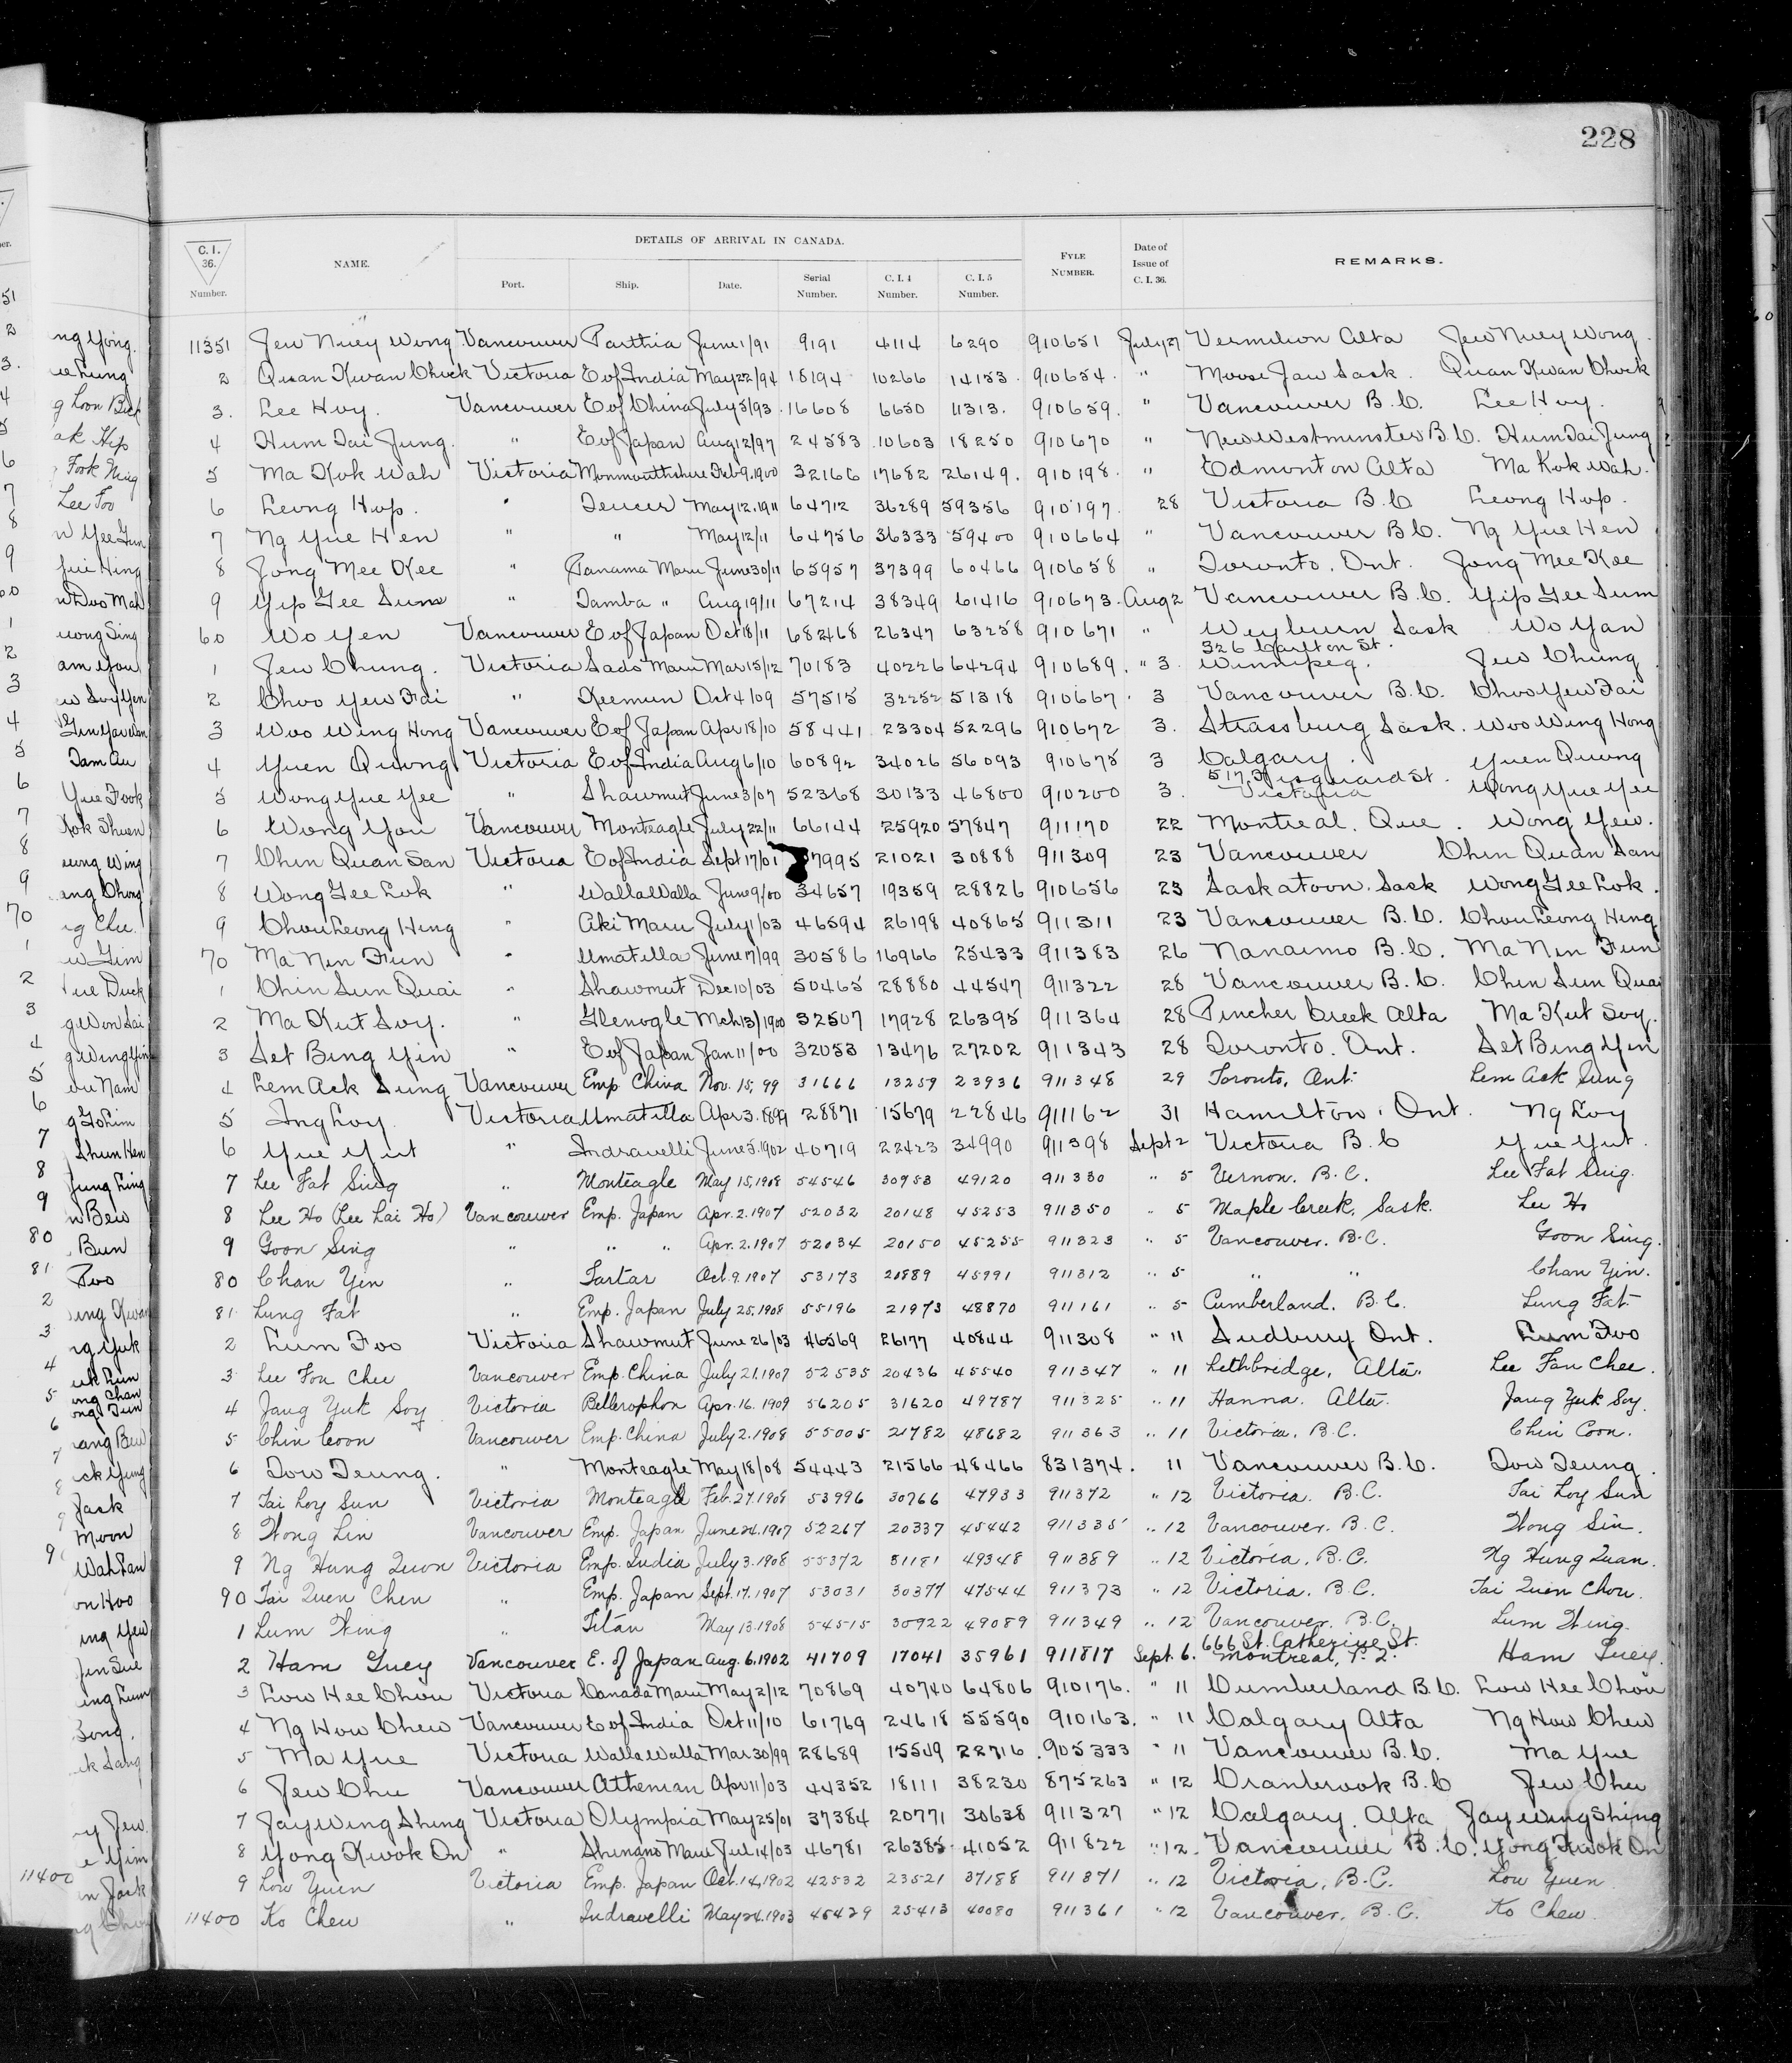 228
DETAILS OF ARRIVAL IN CANADA.
C. I. 36. Number. NAME. Port. Ship. Date. Serial Number. C. I. 4 Number. C. I. 5 Number. FYLE NUMBER. Date of Issue of C. I. 36. REMARKS.
11351 Jew Nuey Wong Vancouver Parthia June 1/91 9191 4114 6290 910651 July 27 Vermilion Alta Jew Nuey Wong
2 Quan Kwan Chuck Victoria E of India May 22/94 18194 10266 14153 910654 " Moose Jaw Sask. Quan Kwan Chuck
3. Lee Huy. Vancouver E of China July 5/93 16608 6650 11313. 910659. " Vancouver B.C. Lee Huy.
4 Hum Dai Jung. " E of Japan Aug 12/97 24583 10603 18250 910670 " New Westminster B.C. Hum Dai Jung
5 Ma Kok Wah Victoria Monmouthshire Feb 9, 1900 32166 17682 26149. 910198. " Edmonton Alta Ma Kok Wah.
6 Leong Hop. " Teucer May 12. 1911 64712 36289 59356 910197. 28 Victoria B.C Leong Hop.
7 Ng Yue Hen " " May 12/11 64756 36333 59400 910664 " Vancouver B.C. Ng Yue Hen
8 Jong Mee Kee " Panama Maru June 30/11 65957 37399 60466 910658 " Toronto, Ont. Jong Mee Kee
9 Yip Gee Sum " Tamba " Aug 19/11 67214 38349 61416 910673. Aug 2 Vancouver B.C. Yip Gee Sum
60 Wo Yen Vancouver E of Japan Oct 18/11 68468 26347 63258 910671 " Weyburn Sask Wo Yan
326 Carlton St.
1 Jew Chung. Victoria Sado Maru Mar 15/12 70183 40226 64294 910689. " 3. Winnipeg. Jew Chung
2 Choo Yew Fai " Keemun Oct 4/09 57515 32252 51318 910667. 3 Vancouver B.C. Choo Yew Fai
3 Woo Wing Hong Vancouver E of Japan Apr 18/10 58441 23304 52296 910672 3. Strassburg Sask. Woo Wing Hong
4 Yuen Quong Victoria E of India Aug 6/10 60892 34026 56093 910675 3 Calgary. Yuen Quong
517 Fisguard St.
5 Wong Yue Yee " Shawmut June 3/07 52368 30133 46800 910200 3. Victoria Wong Yue Yee
6 Wong You Vancouver Monteagle July 22/11 66144 25920 57847 911170 22 Montreal. Que. Wong Yew.
7 Chin Quan San Victoria E of India Sept 17/01 7995 21021 30888 911309 23 Vancouver Chin Quan San
8 Wong Gee Lok " Walla Walla June 9/00 34657 19359 28826 910656 23 Saskatoon. Sask Wong Gee Lok.
9 Chou Leong Hing " Aki Maru July 1/03 46594 26198 40865 911311 23 Vancouver B.C. Chou Leong Hing
70 Ma Nen Fun " Umatilla June 17/99 30586 16966 25433 911383 26 Nanaimo B.C. Ma Nen Fun
1 Chin Sun Quai " Shawmut Dec 10/03 50465 28880 44547 911322 28 Vancouver B.C. Chin Sun Quai
2 Ma Kut Soy. " Glenogle Mch 13/1900 32507 17928 26395 911364 28 Pincher Creek Alta Ma Kut Soy.
3 Set Bing Yin " E of Japan Jan 11/00 32053 13476 27202 911343 28 Toronto. Ont. Set Bing Yin
4 Lem Ack Sung Vancouver Emp China Nov. 15, 99 31666 13259 23936 911348 29 Toronto, Ont. Lem Ack Sung
5 Ing Loy. Victoria Umatilla Apr 3. 1899 28871 15679 22846 911162 31 Hamilton, Ont. Ng Loy
6 Yue Yut " Indravelli June 5. 1902 40719 22423 34990 911398 Sept 2 Victoria B.C Yue Yut.
7 Lee Fat Sing " Monteagle May 15, 1908 54546 30953 49120 911330 " 5 Vernon. B.C. Lee Fat Sing.
8 Lee Ho (Lee Lai Ho) Vancouver Emp. Japan Apr. 2. 1907 52032 20148 45253 911350 " 5 Maple Creek, Sask. Lee Ho
9 Goon Sing " " " Apr. 2. 1907 52034 20150 45255 911323 " 5 Vancouver. B.C. Goon Sing.
80 Chan Yin " Tartar Oct. 9. 1907 53173 20889 45991 911312 " 5 " " Chan Yin.
81 Lung Fat " Emp. Japan July 25, 1908 55196 21973 48870 911161 " 5 Cumberland. B.C. Lung Fat
2 Lum Foo Victoria Shawmut June 26/03 46569 26177 40844 911308 " 11 Sudbury Ont. Lum Foo
3 Lee Fon Chee Vancouver Emp. China July 21. 1907 52535 20436 45540 911347 " 11 Lethbridge, Alta. Lee Fan Chee.
4 Jang Yuk Soy Victoria Bellerophon Apr. 16. 1909 56205 31620 49787 911325 " 11 Hanna. Alta. Jang Yuk Soy.
5 Chin Coon Vancouver Emp. China July 2. 1908 55005 21782 48682 911363 " 11 Victoria. B.C. Chin Coon.
6 Dow Deung. " Monteagle May 18/08 54443 21566 48466 831374. 11 Vancouver B.C. Dow Deung.
7 Tai Loy Sun Victoria Monteagle Feb. 27. 1908 53996 30766 47933 911372 " 12 Victoria. B.C. Tai Loy Sun
8 Wong Lin Vancouver Emp. Japan June 24. 1907 52267 20337 45442 911335 " 12 Vancouver. B.C. Wong Sin.
9 Ng Hung Quon Victoria Emp. India July 3. 1908 55372 31181 49348 911389 " 12 Victoria. B.C. Ng Hung Quan.
90 Tai Quen Chen " Emp. Japan Sept. 17. 1907 53031 30377 47544 911373 " 12 Victoria. B.C. Tai Quen Chou.
1 Lum Wing " Titan May 13. 1908 54515 30922 49089 911349 " 12 Vancouver. B.C. Lum Wing.
666 St. Catherine St.
2 Ham Guey Vancouver E. of Japan Aug. 6, 1902 41709 17041 35961 911817 Sept. 6. Montreal, P.Q. Ham Guey.
3 Low Hee Chou Victoria Canada Maru May 2/12 70869 40740 64806 910176. " 11 Cumberland B.C. Low Hee Chou
4 Ng How Chew Vancouver E of India Oct 11/10 61769 24618 55590 910163. " 11 Calgary Alta Ng How Chew
5 Ma Yue Victoria Walla Walla Mar 30/99 28689 15549 22716 905333 " 11 Vancouver B.C. Ma Yue
6 Jew Chu Vancouver Athenian Apr 11/03 44352 18111 38230 875263 " 12 Cranbrook B.C Jew Chu
7 Jay Wing Shing Victoria Olympia May 25/01 37384 20771 30638 911327 " 12 Calgary. Alta Jay Wing Shing
8 Yong Kwok On " Shinano Maru Jul 14/03 46781 26385 41052 911822 " 12. Vancouver B.C. Yong Kwok On
9 Low Yuen Victoria Emp. Japan Oct. 14, 1902 42532 23521 37188 911871 " 12 Victoria, B.C. Low Yuen
11400 Ko Chew " Indravelli May 24. 1903 45429 25413 40080 911361 " 12 Vancouver. B.C. Ko Chew.